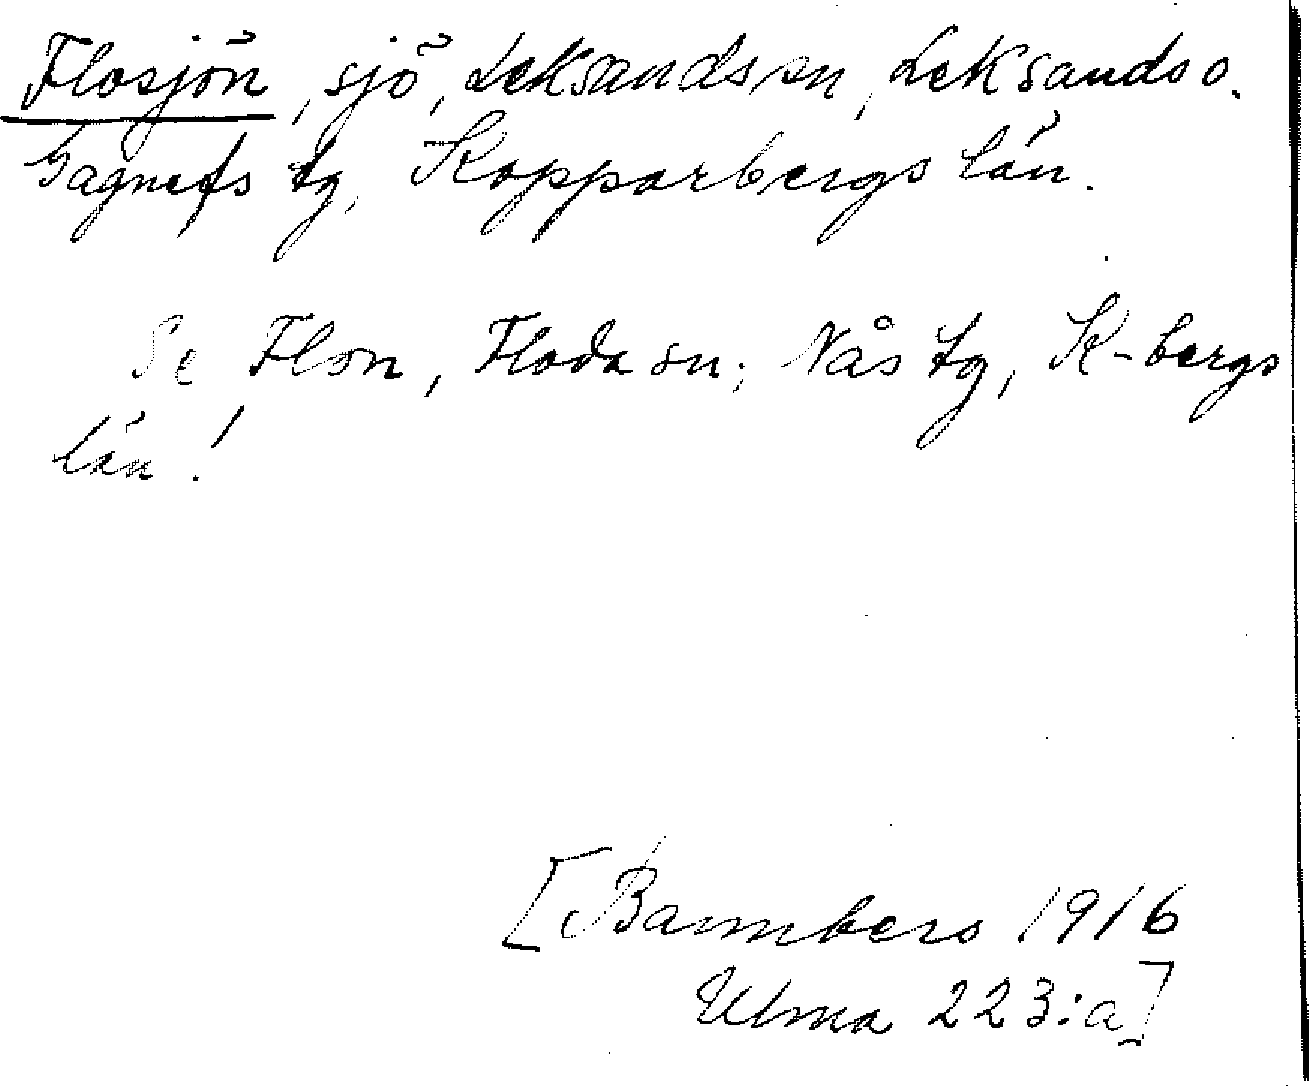 Flosjön, sjö, Leksands sn, Leksands o.
Gagnefs tg, Kopparbergs län.
Se Flon, Floda sn, Nås tg, K-bergs
län!
[Bannbers 1916
Ulma 223:a]